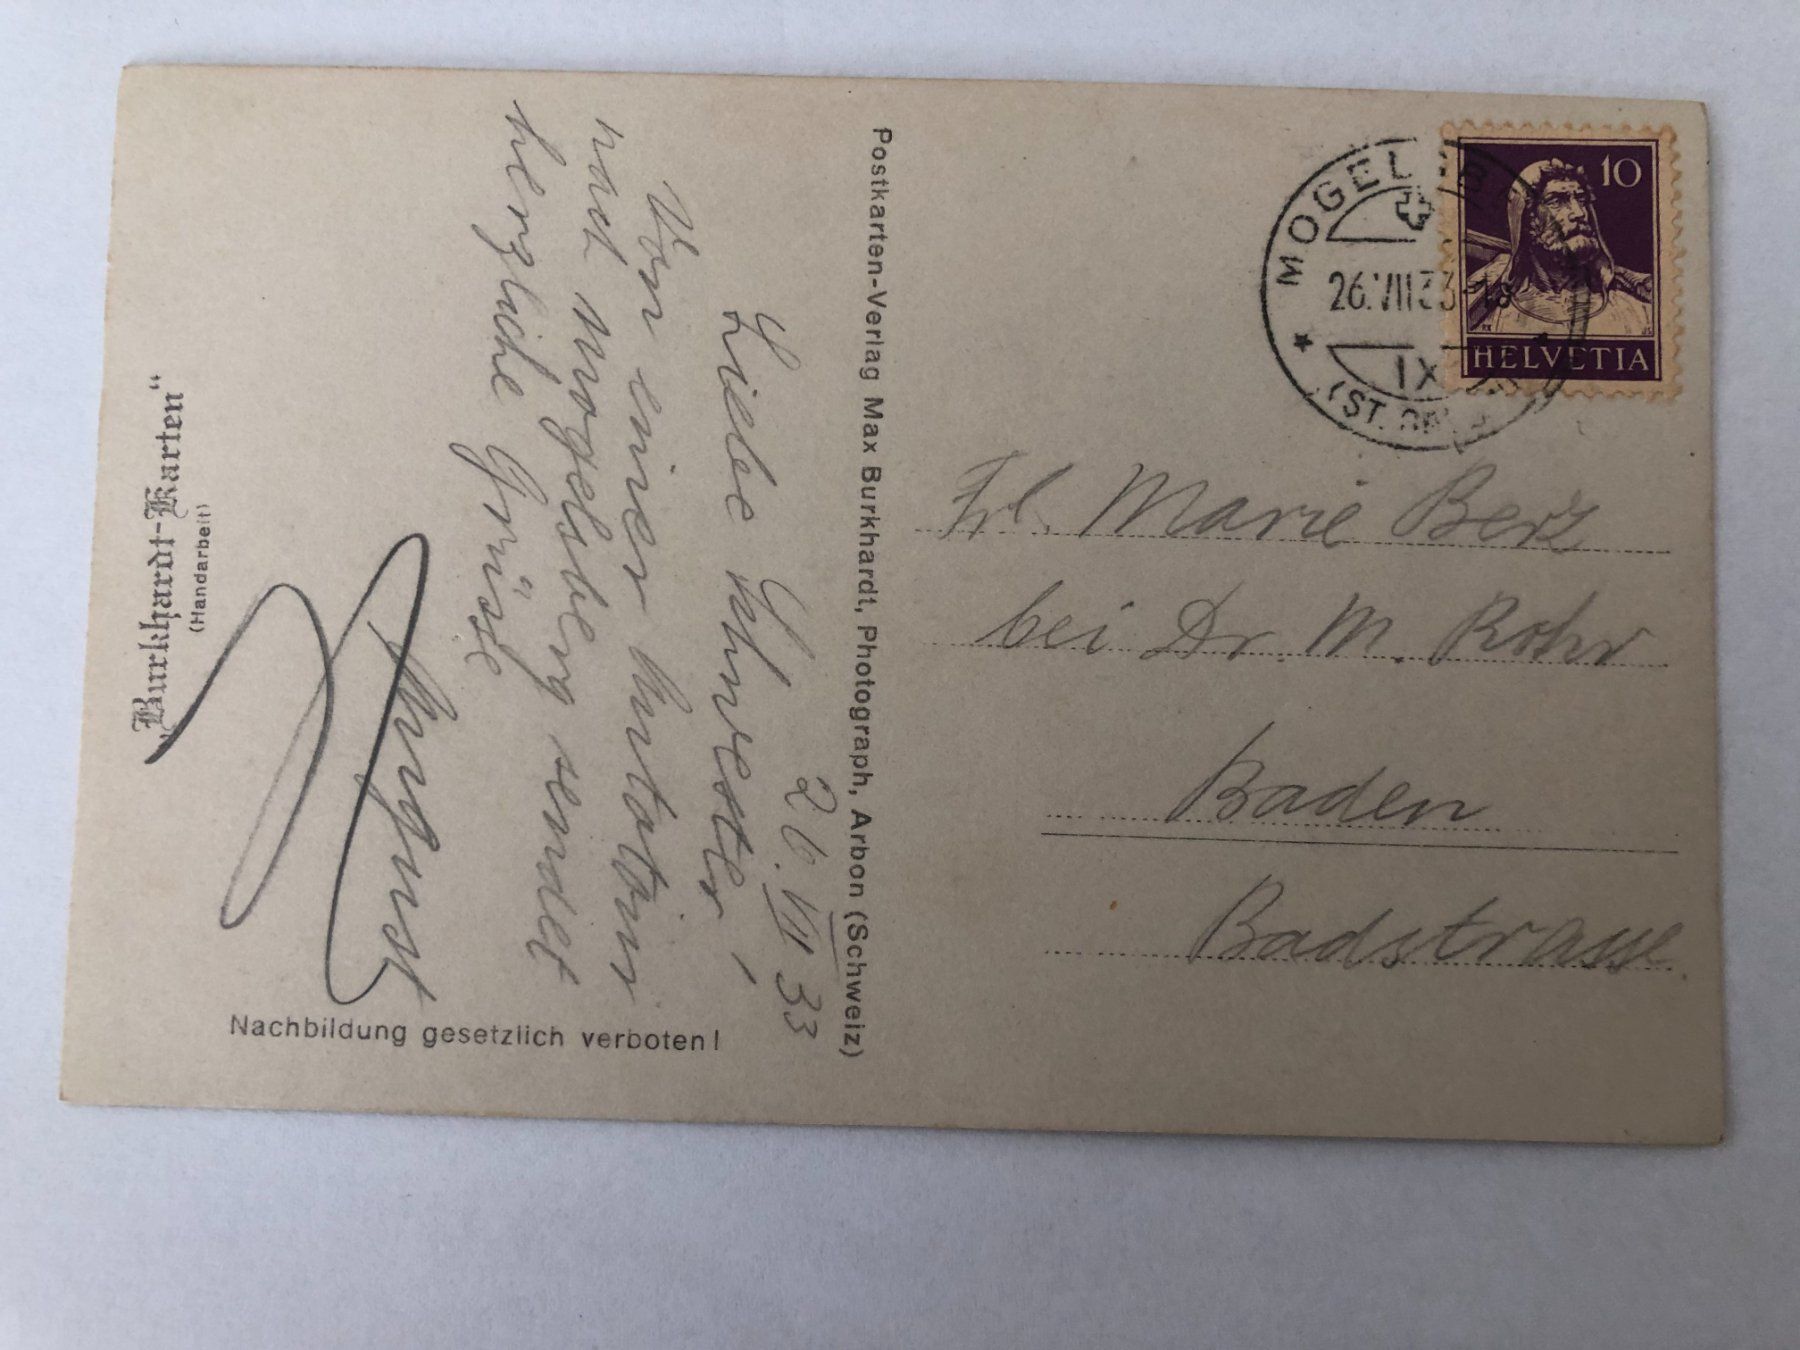 26. VII 33
Liebe Schwester!
Von einer Autotour
nach Mogelsberg sendet
herzliche Grüsse
August
Postkarten-Verlag Max Burkhardt, Photograph, Arbon (Schweiz)
"Burkhardt-Karten"
(Handarbeit)
Nachbildung gesetzlich verboten!
26.VII33-18
IX
(ST.
10
HELVETIA
Frl. Marie Berz
bei Dr. M. Rohr
Baden
Badstrasse